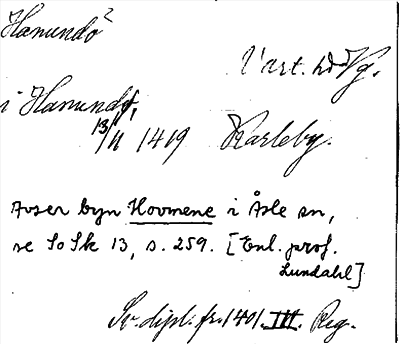 Hanundö²
Vart. hd Vg.
i Hanundø,
13/11 1419 Karleby.
Avser byn Hovmene i Åsle sn,
se SoSk 13, s. 259. [Enl. prof.
Lundahl]
Sv. dipl. fr. 1401. III. Reg.